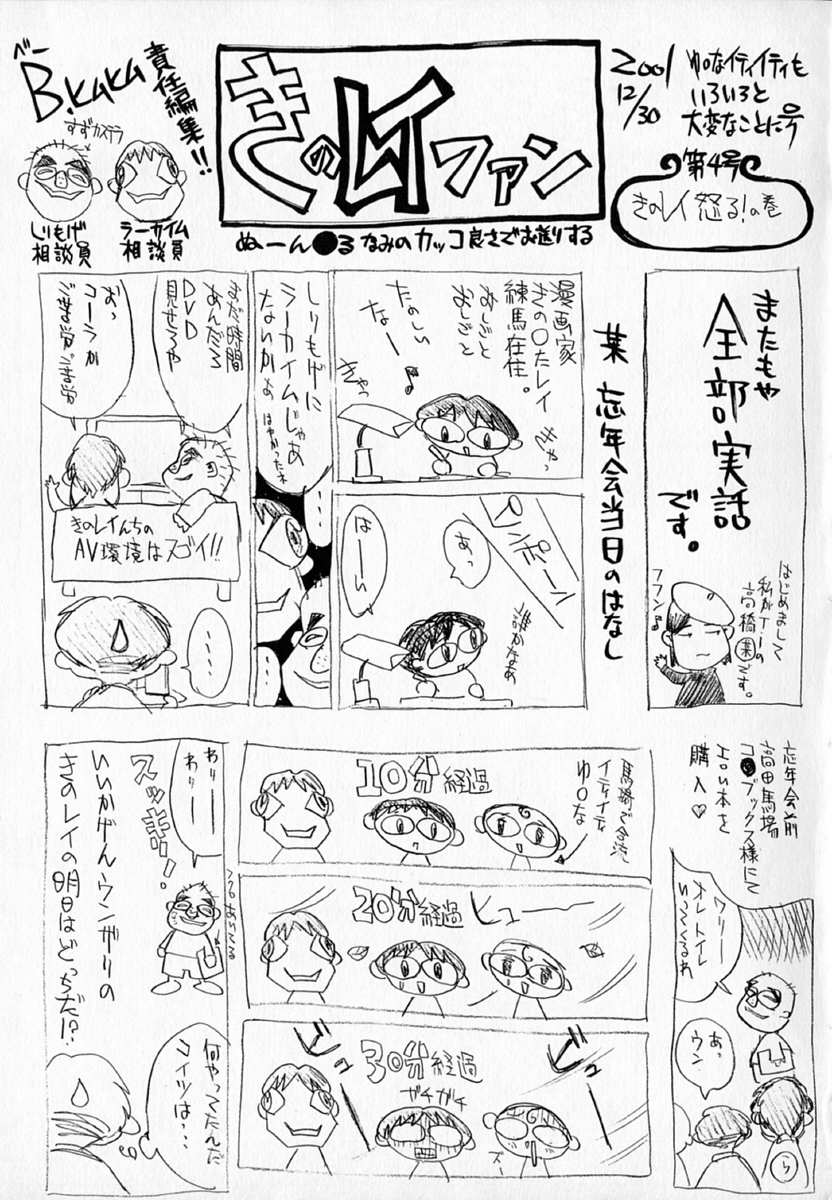 ベー
B.KaKa
責任編集!!
すずカステラ
しりもげ
相談員
ラーカイム
相談員
きのレイファン
ぬーん●る なみのカッコ良さでお送りする
2001
12/30
ゆ○なイティイティも
いろいろと
大変なことに号
第4号
きのレイ怒る!の巻
またもや
全部実話
です。
はじめまして
高橋
です。
フフン
某 忘年会当日のはなし
漫画家
きの○たレイ
練馬在住。
おしごと
おしごと
たのしい
なー♪
きゃっ
きゃっ
ピンポーン
あっ
誰かなぁ
はーい
しりもげに
ラーカイムじゃあ
ないかぁ
はやかったネ
・・・
・・・
まだ時間
あんだろ
DVD
見せろや
おっ
コーラか
ご苦労ご苦労
きのレイんちの
AV環境はスゴイ!!
・・・・
忘年会前
高田馬場
コ●ブックス様にて
エロい本を
購入♡
ワリー
オレトイレ
いってくるわ
あっ
ウン
ら
10分経過
馬場で合流
イティイティ
ゆ○な
20分経過
ヒュー
30分経過
ビュ
ビュ
ガチガチ
ズー
わりー
わりー
スッキリ!
何やってたんだ
コイツは・・・
いいかげんウンザリの
きのレイの明日はどっちだ!?